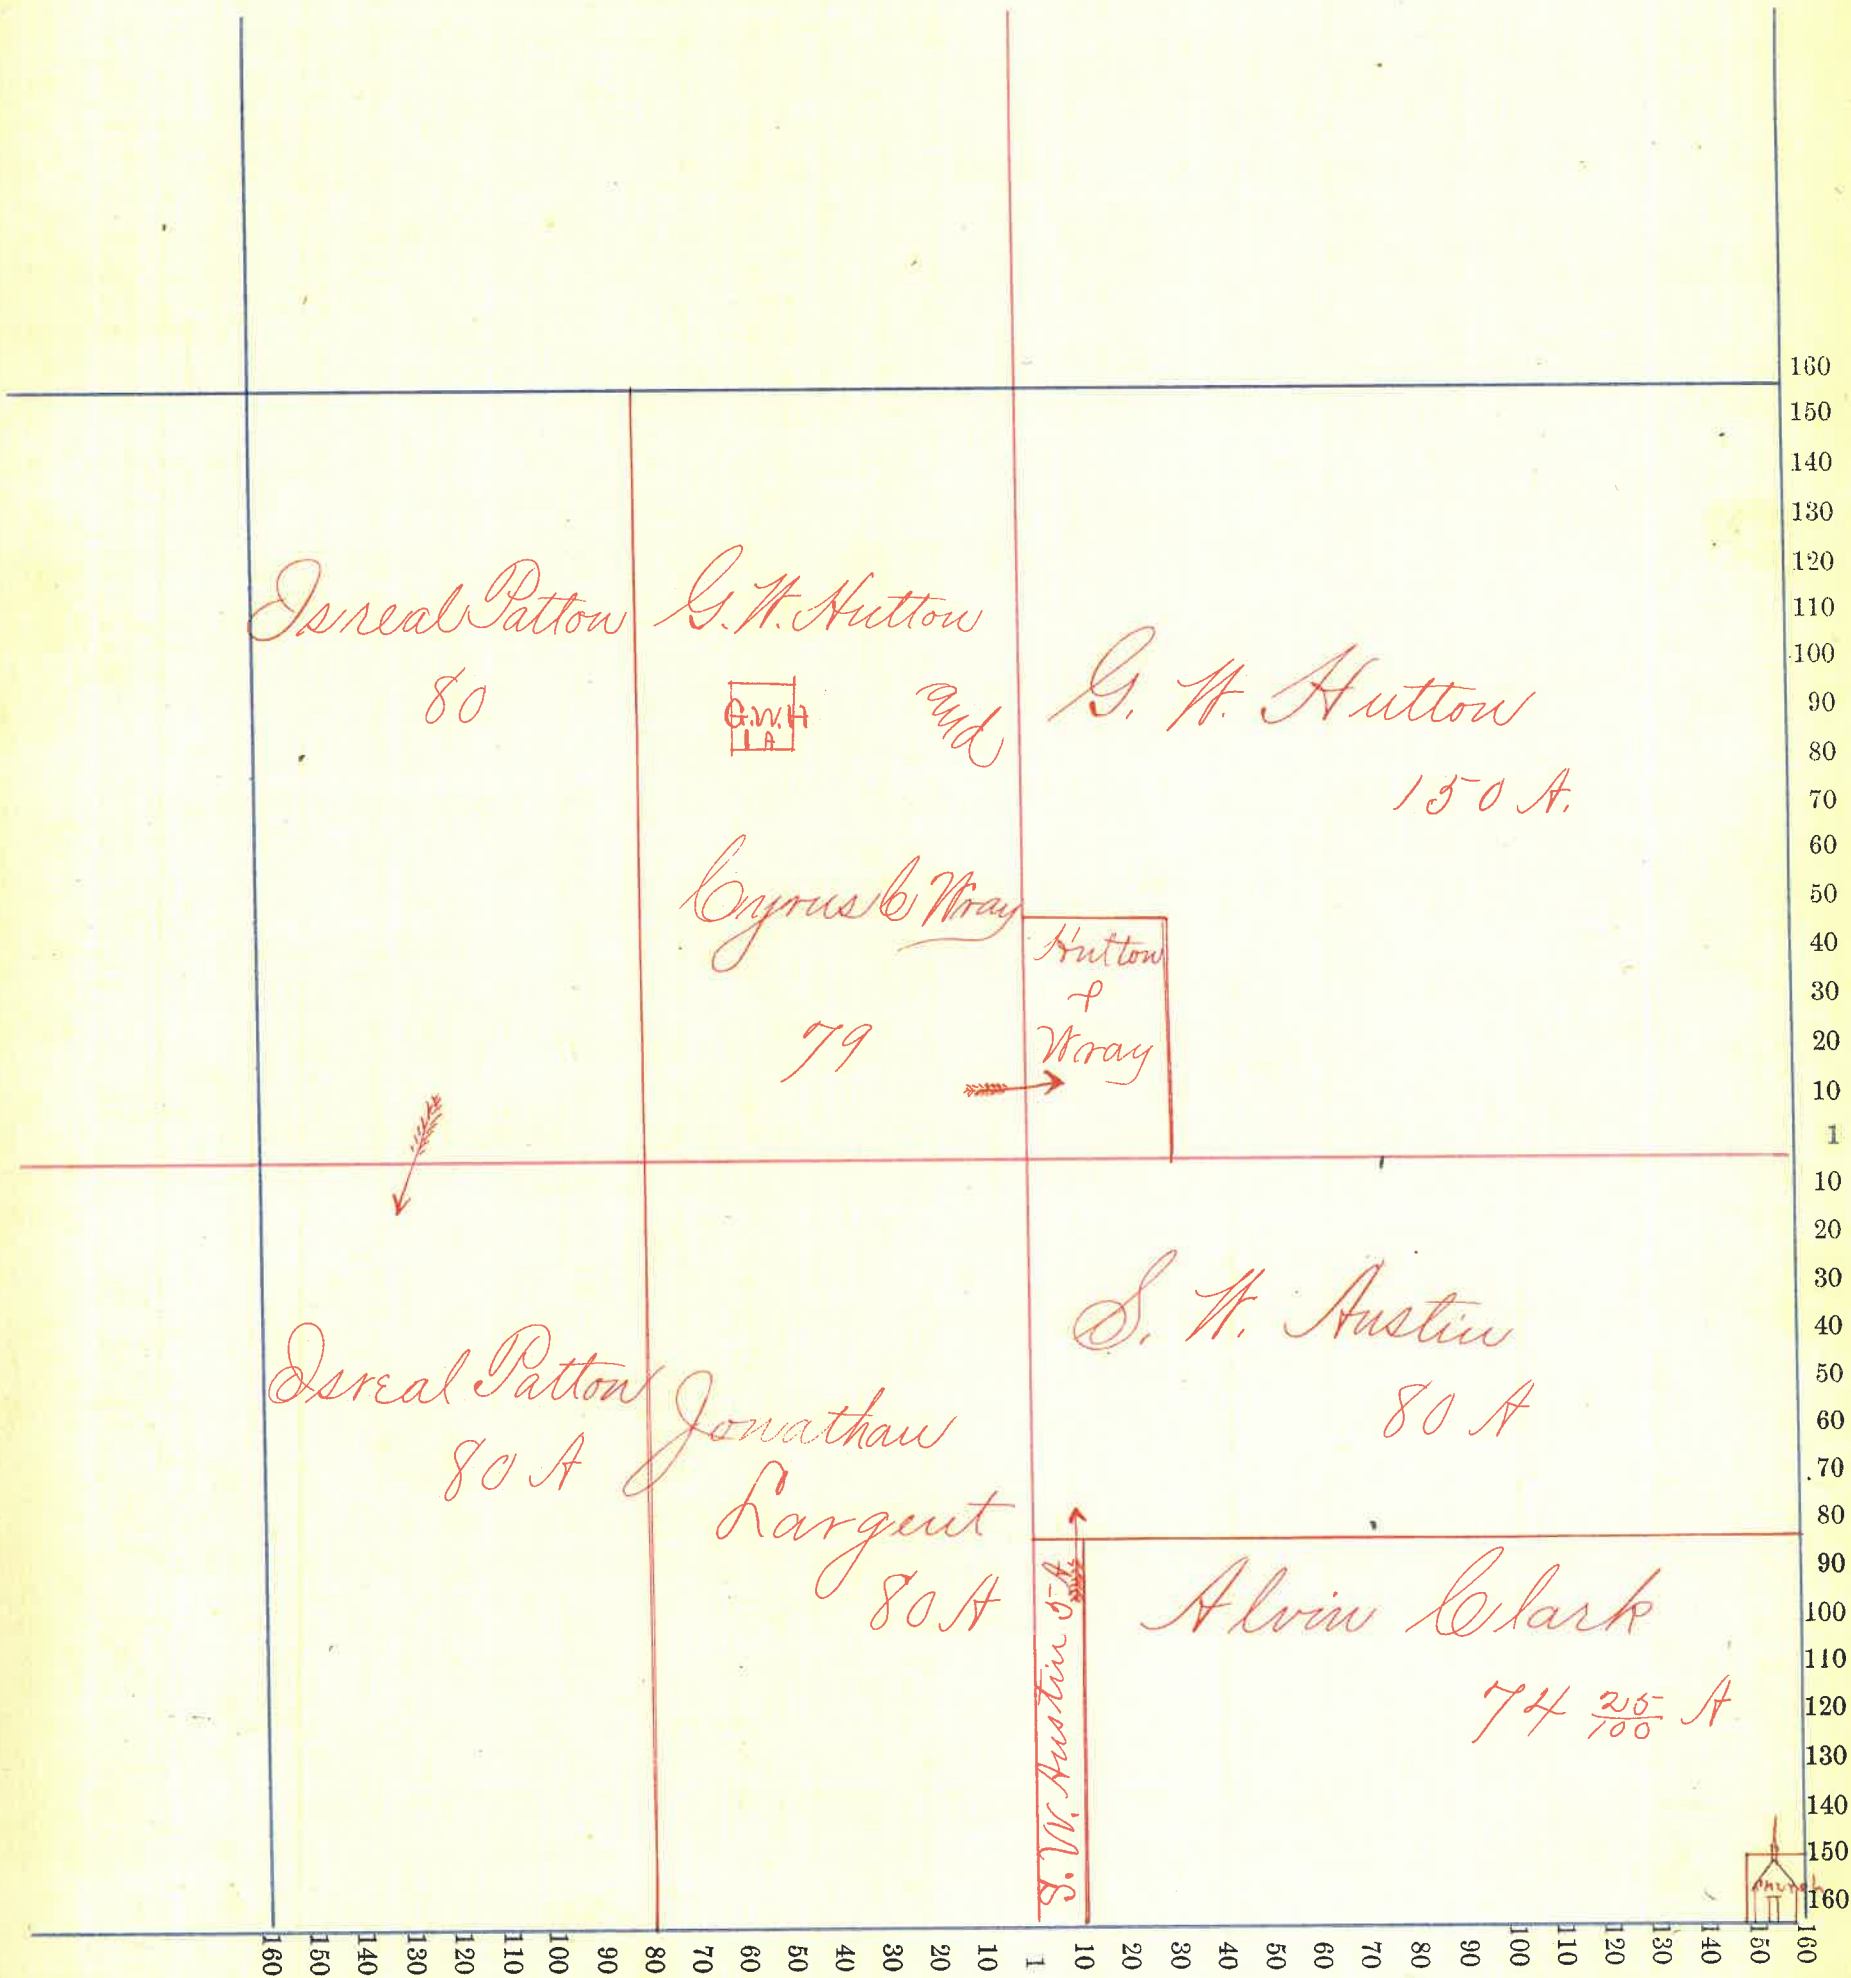 Isreal Patton
80
G. W. Hutton
G.W.H
1 A
and
Cyrus C Wray
79
G. W. Hutton
150 A.
Hutton
&
Wray
Isreal Patton
80 A
Jonathan
Largent
80 A
S. W. Austin
80 A
S. W. Austin 5 A
Alvin Clark
74 25/100 A
Church
160
150
140
130
120
110
100
90
80
70
60
50
40
30
20
10
1
10
20
30
40
50
60
70
80
90
100
110
120
130
140
150
160
160 150 140 130 120 110 100 90 80 70 60 50 40 30 20 10 1 10 20 30 40 50 60 70 80 90 100 110 120 130 140 150 160